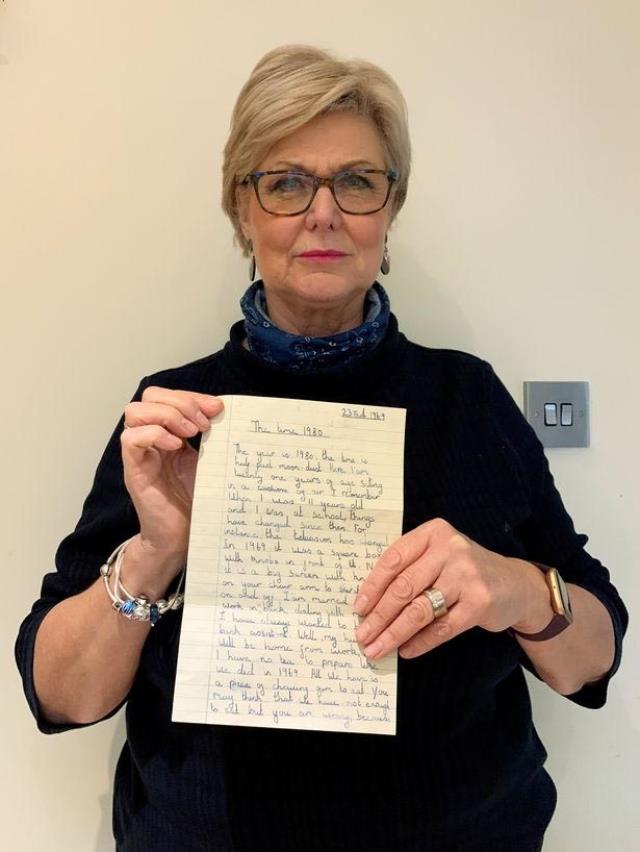 23rd 1969
The time 1980
The year is 1980. the time is
half past moon-dust. Here I am
twenty one years of age sitting
in a cushione of air. I remember
When I was 11 years old
and I was at school, things
have changed since then. For
instance the television has changed
In 1969 it was a square box
with knobs in front of it. N
it is a big screen with knob
on your chair arm to
on and off. I am married
work in bank
I have always wanted to
bank assistant. Well, my hus
Will be home from work,
I have no tea to prepare like
we did in 1969. All we have is
a piece of chewing gum to eat You
may think that we have not enough
to eat but you are wrong, because